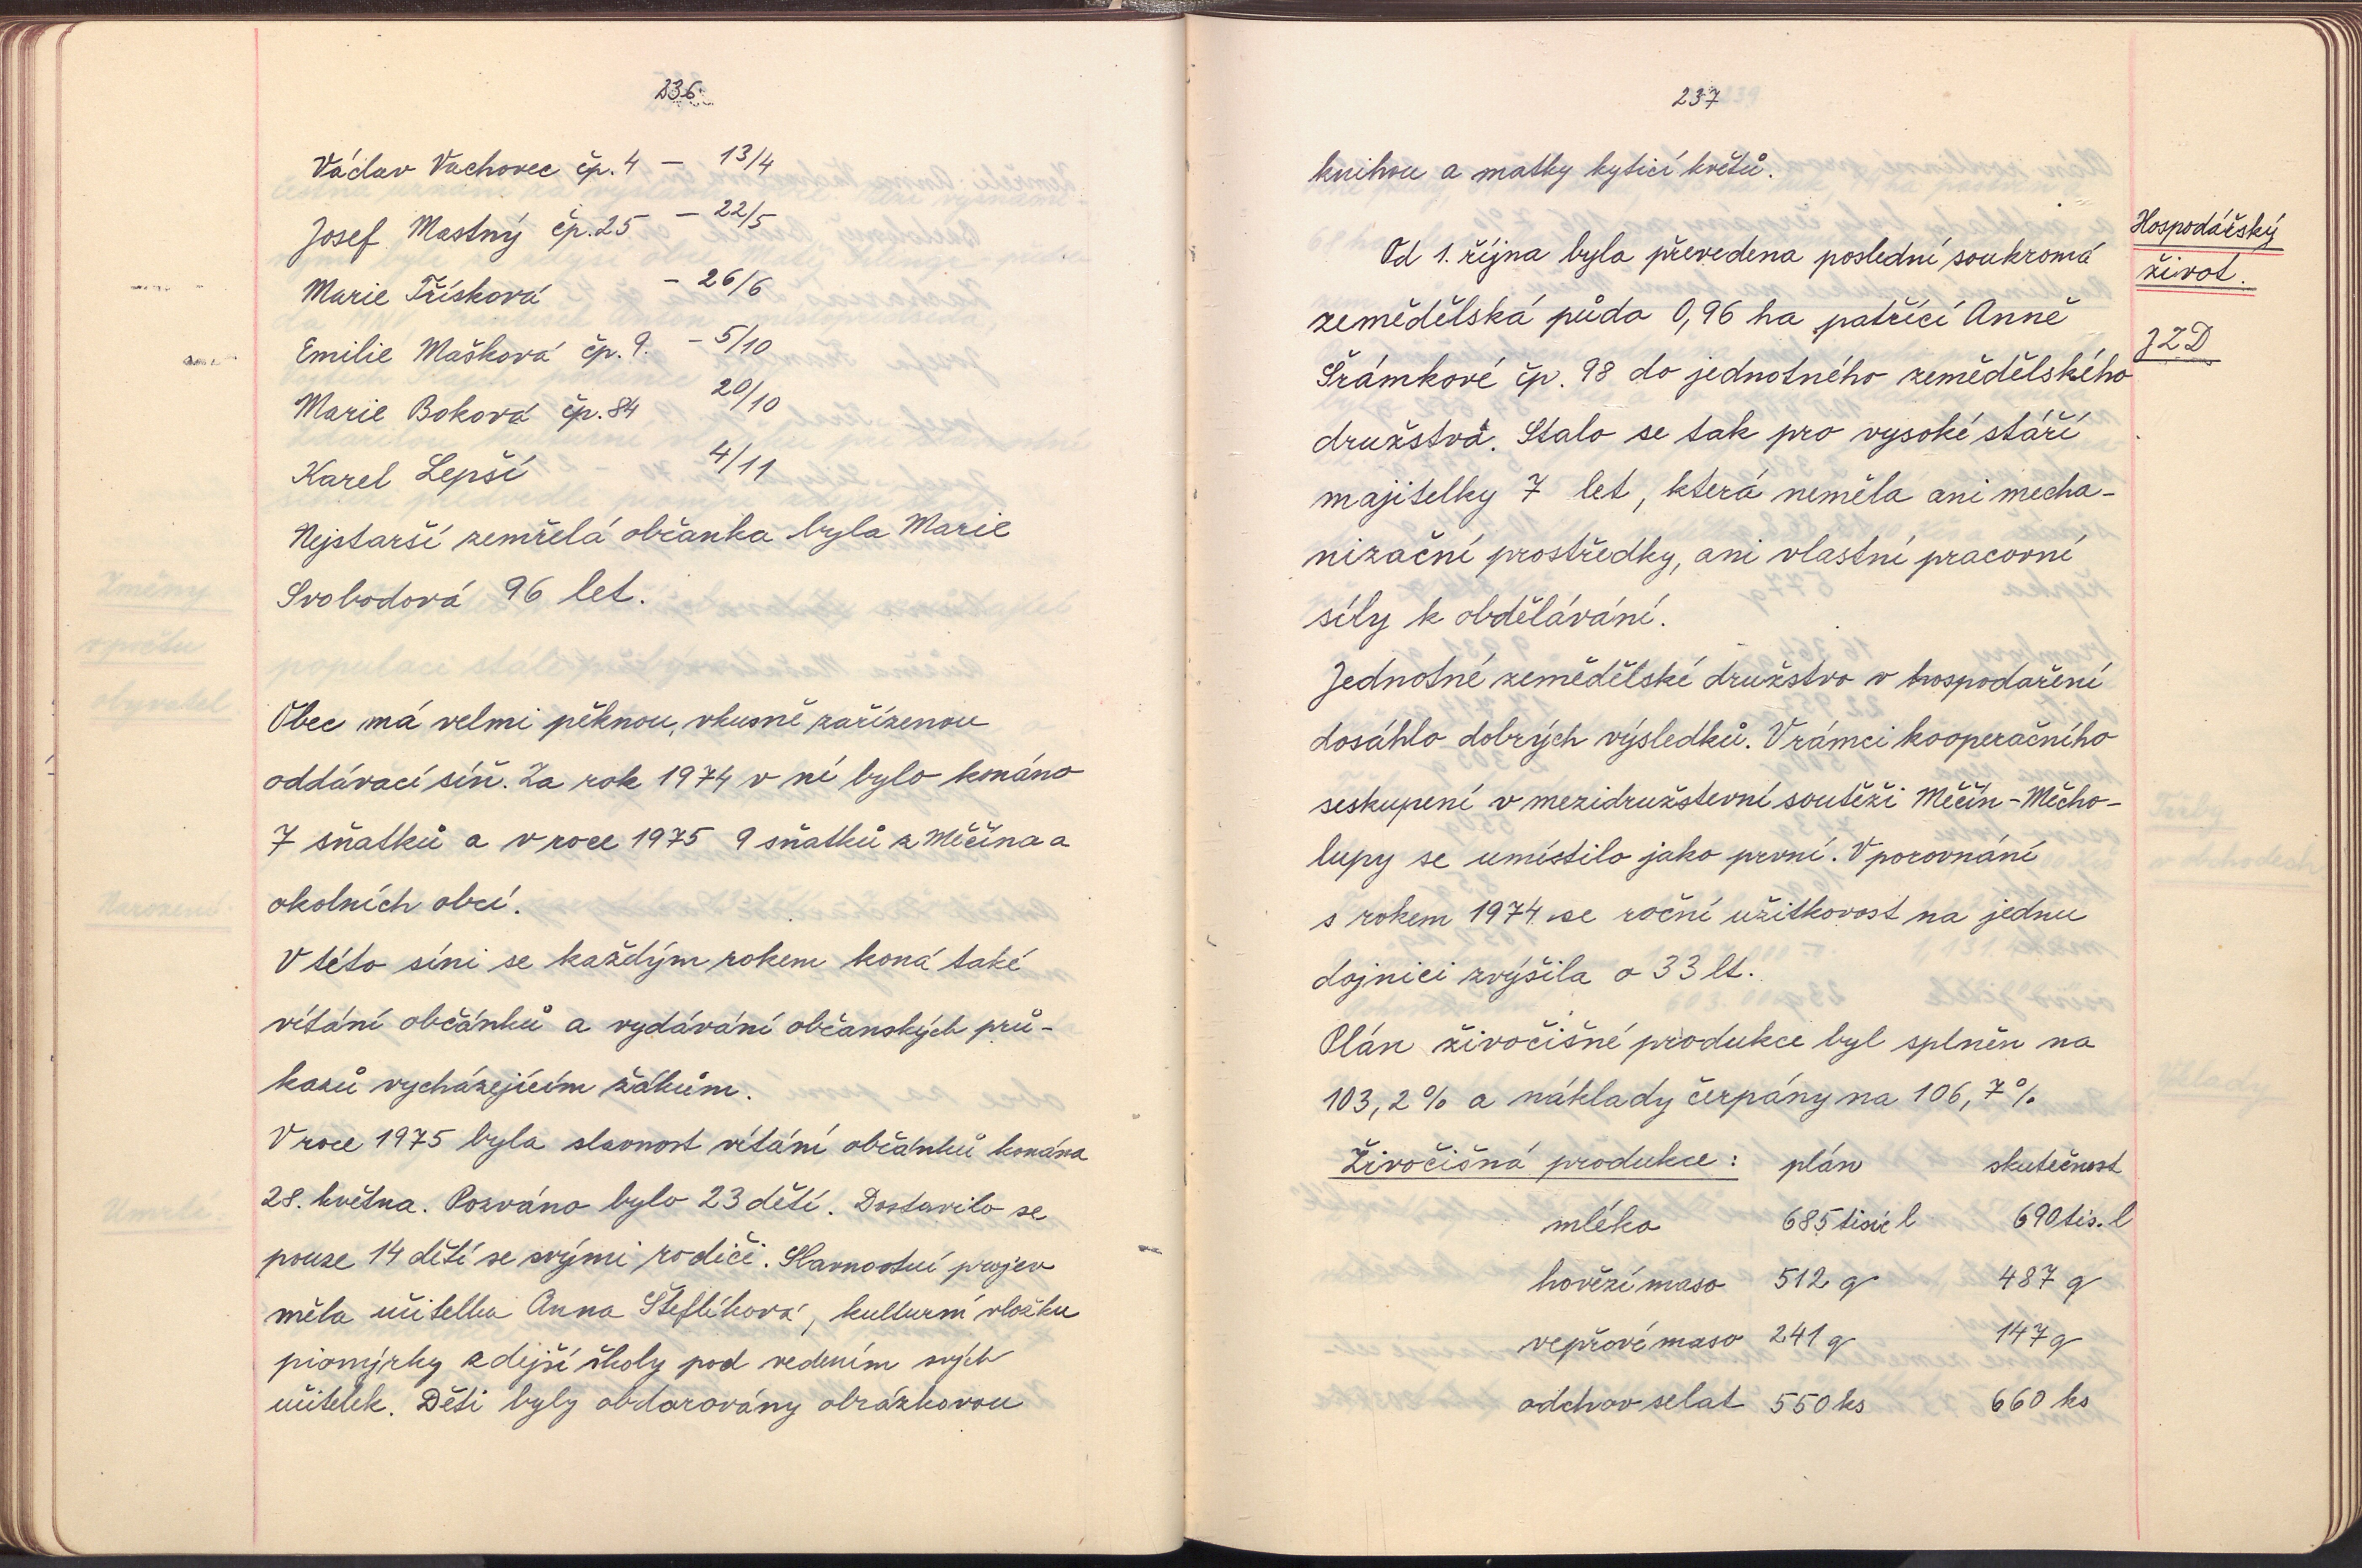 236
Václav Vachovec čp. 4 – 13/4
Josef Mastný čp. 25 – 22/5
Marie Třísková – 26/6
Emilie Mašková čp. 9. – 5/10
Marie Boková čp. 84 20/10
Karel Lepší 4/11
Nejstarší zemřelá občanka byla Marie
Svobodová 96 let.
Obec má velmi pěknou, vkusně zařízenou
oddávací síň. Za rok 1974 v ní bylo konáno
7 sňatků a v roce 1975 9 sňatků z Měčína a
okolních obcí.
V této síni se každým rokem koná také
vítání občánků a vydávání občanských prů-
kazů vycházejícím žákům.
V roce 1975 byla slavnost vítání občánků konána
28. května. Pozváno bylo 23 dětí. Dostavilo se
pouze 14 dětí se svými rodiči. Slavnostní projev
měla učitelka Anna Šteflíková, kulturní vložku
pionýrky zdejší školy pod vedením svých
učitelek. Děti byly obdarovány obrázkovou
237
knihou a matky kyticí květů.
Hospodářský
život.
JZD
Od 1. října byla převedena poslední soukromá
zemědělská půda 0,96 ha patřící Anně
Šrámkové čp. 98 do jednotného zemědělského
družstva. Stalo se tak pro vysoké stáří
majitelky 7 let, která neměla ani mecha-
nizační prostředky, ani vlastní pracovní
síly k obdělávání.
Jednotné zemědělské družstvo v hospodaření
dosáhlo dobrých výsledků. V rámci kooperačního
seskupení v mezidružstevní soutěži Měčín - Měcho-
lupy se umístilo jako první. V porovnání
s rokem 1974 se roční užitkovost na jednu
dojnici zvýšila o 33 lt.
Plán živočišné produkce byl splněn na
103,2 % a náklady čerpány na 106,7 %
Živočišná produkce: plán skutečnost
mléko 685 tisíc l 690 tis. l
hovězí maso 512 q 487 q
vepřové maso 241 q 147 q
odchov selat 550 ks 660 ks